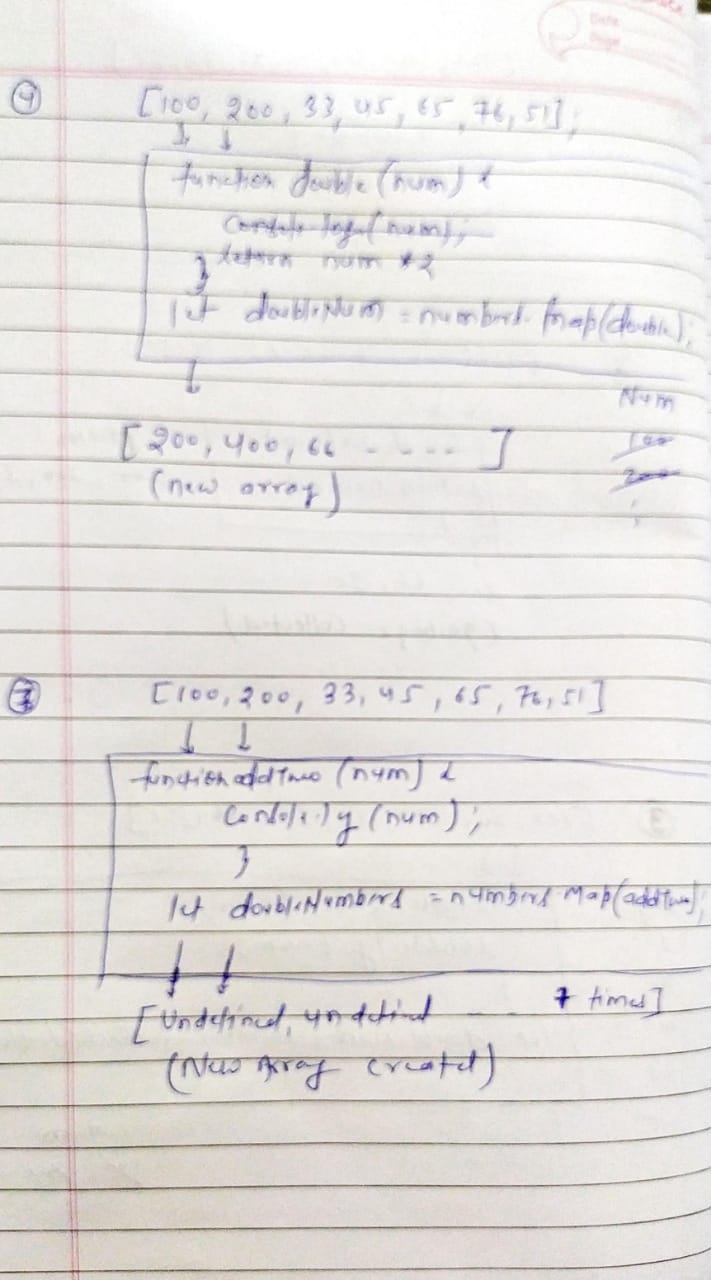 Date
Page
④ [100, 200, 33, 45, 65, 76, 51];
function double (num) {
Console.log(num);
return num *2
}
let doubleNum = numbers.map(double);
Num
[200, 400, 66 - - - - ] 100
(new array) 200
③ [100, 200, 33, 45, 65, 76, 51]
function addTwo (num) {
Console.log (num);
}
let doubleNumbers = numbers Map(addTwo);
[Undefined, undefined - - - 7 times]
(New Array created)